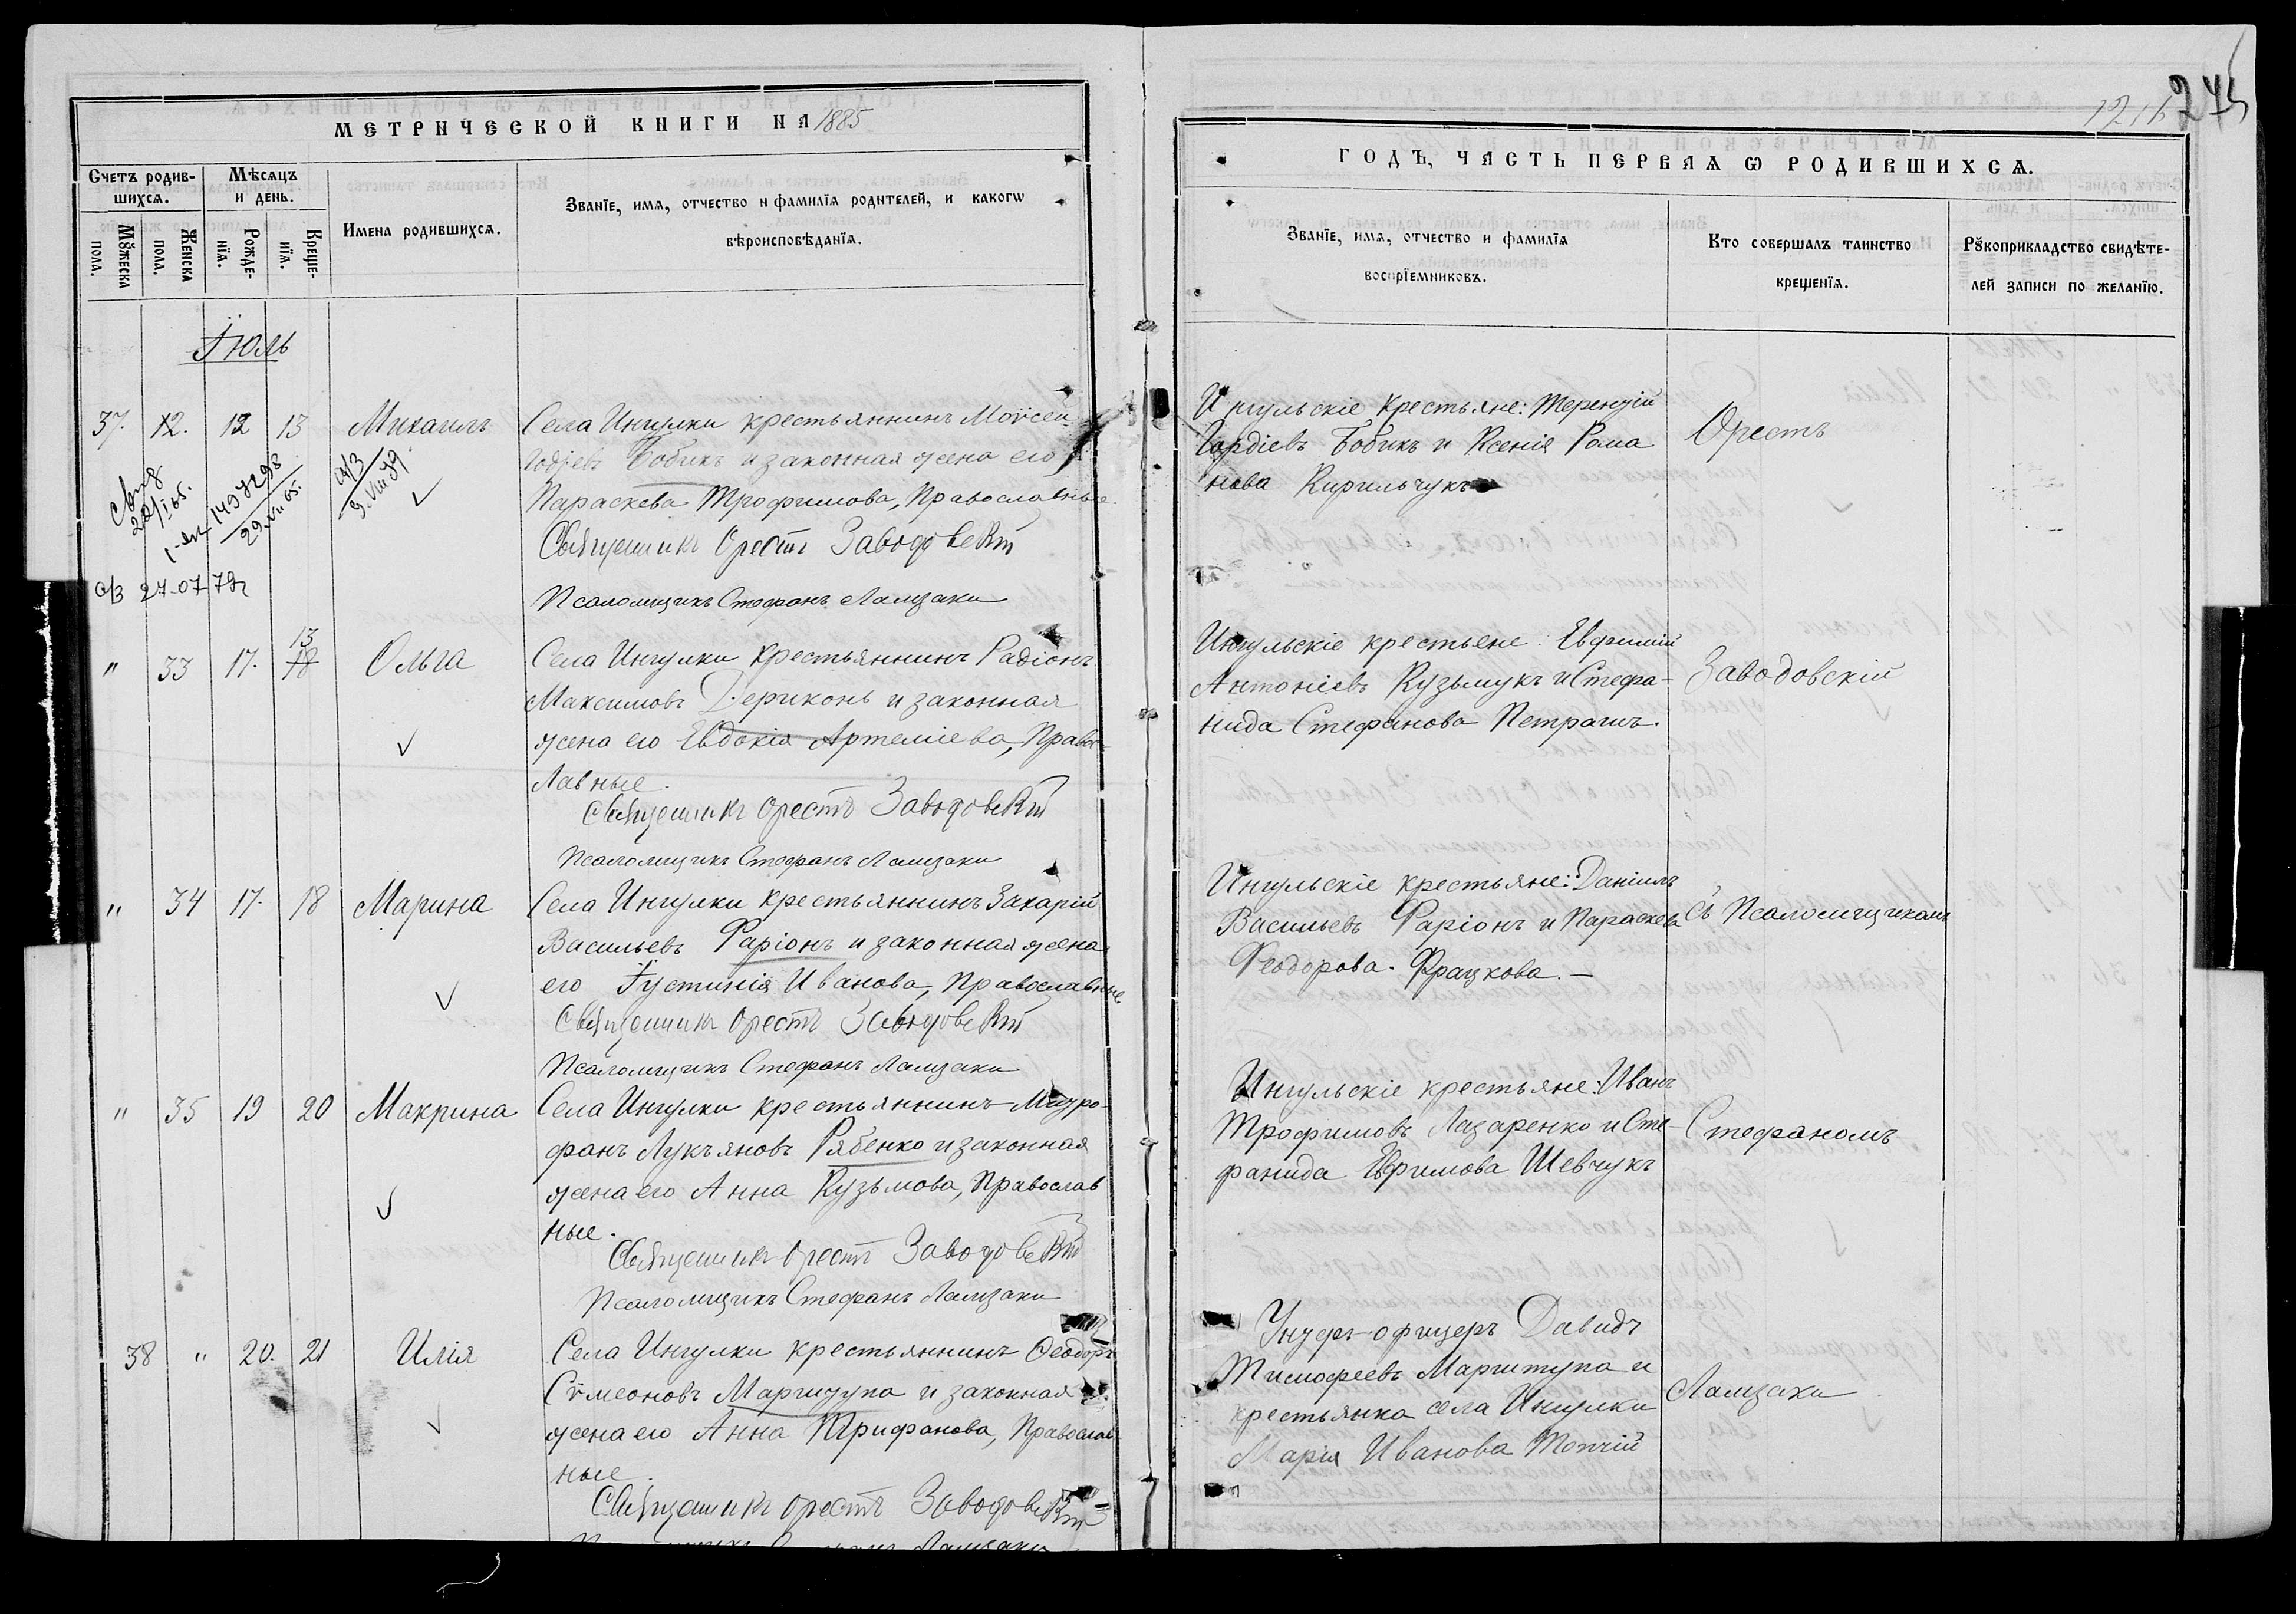 МЕТРИЧЕСКОЙ КНИГИ НА 1885
Счетъ родив-
шихсѧ.
Мѣсѧцъ
и день.
Мꙋжеска
пола.
Женска
пола.
Рожде-
нїѧ.
Креще-
нїѧ.
Имена родившихсѧ.
Званїе, имѧ, отчество и фамилїѧ родителей, и какогѡ
вѣроисповѣданїѧ.
Іюль
37. 12. 12 13 Михаилъ
Села Ингулки крестьяннинъ Моѵсей
Годіевъ Бобикъ и законная жена его
Параскева Трофимова, Православные.
Священникъ Орестъ Заводовскій
Псаломщикъ Стефанъ Ламзаки
27-07-79
" 33 17. 13 18 Ольга
Села Ингулки крестьяннинъ Радіонъ
Максимовъ Дериконь и законная
жена его Евдокія Артеміева, Правос-
лавные.
Священникъ Орестъ Заводовскій
Псаломщикъ Стефанъ Ламзаки
" 34 17. 18 Марина
Села Ингулки крестьяннинъ Захарій
Васильевъ Фаріонъ и законная жена
его Іустинія Иванова, Православные.
Священникъ Орестъ Заводовскій
Псаломщикъ Стефанъ Ламзаки
" 35 19 20 Макрина
Села Ингулки крестьяннинъ Митро-
фанъ Лукъяновъ Рябенко и законная
жена его Анна Кузьмова, Православ
ные.
Священникъ Орестъ Заводовскій
Псаломщикъ Стефанъ Ламзаки
38 " 20. 21 Илія
Села Ингулки крестьяннинъ Ѳеодоръ
Сѵмеоновъ Маргитупа и законная
жена его Анна Трифанова, Православ-
ные.
Священникъ Орестъ Заводовскій
ГОДЪ, ЧАСТЬ ПЕРВАѦ Ѡ РОДИВШИХСѦ.
275
Званїе, имѧ, отчество и фамилїѧ
воспрїемниковъ.
Кто совершалъ таинство
крещенїѧ.
Рꙋкоприкладство свидѣте-
лей записи по желанїю.
Ингульскіе Крестьяне: Терентій
Гордіевъ Бобикъ и Ксенія Рома
нова Кирильчукъ
Орестъ
Ингульскіе крестьене Евфимій
Антоніевъ Кузьмукъ и Стефа-
нида Стефанова Петрашъ.
Заводовскій
Ингульскіе крестьяне: Даніилъ
Васильевъ Фаріонъ и Параскева
Феодорова. Фрацкова.—
съ Псаломщикомъ
Ингульскіе крестьяне: Иванъ
Трофимовъ Лазаренко и Сте-
фанида Евфимова Шевчукъ
Стефаномъ
Унтеръ-офицеръ Давидъ
Тимофеевъ Маргитупа и
крестьянка села Ингулки
Марія Иванова Топчій
Ламзаки